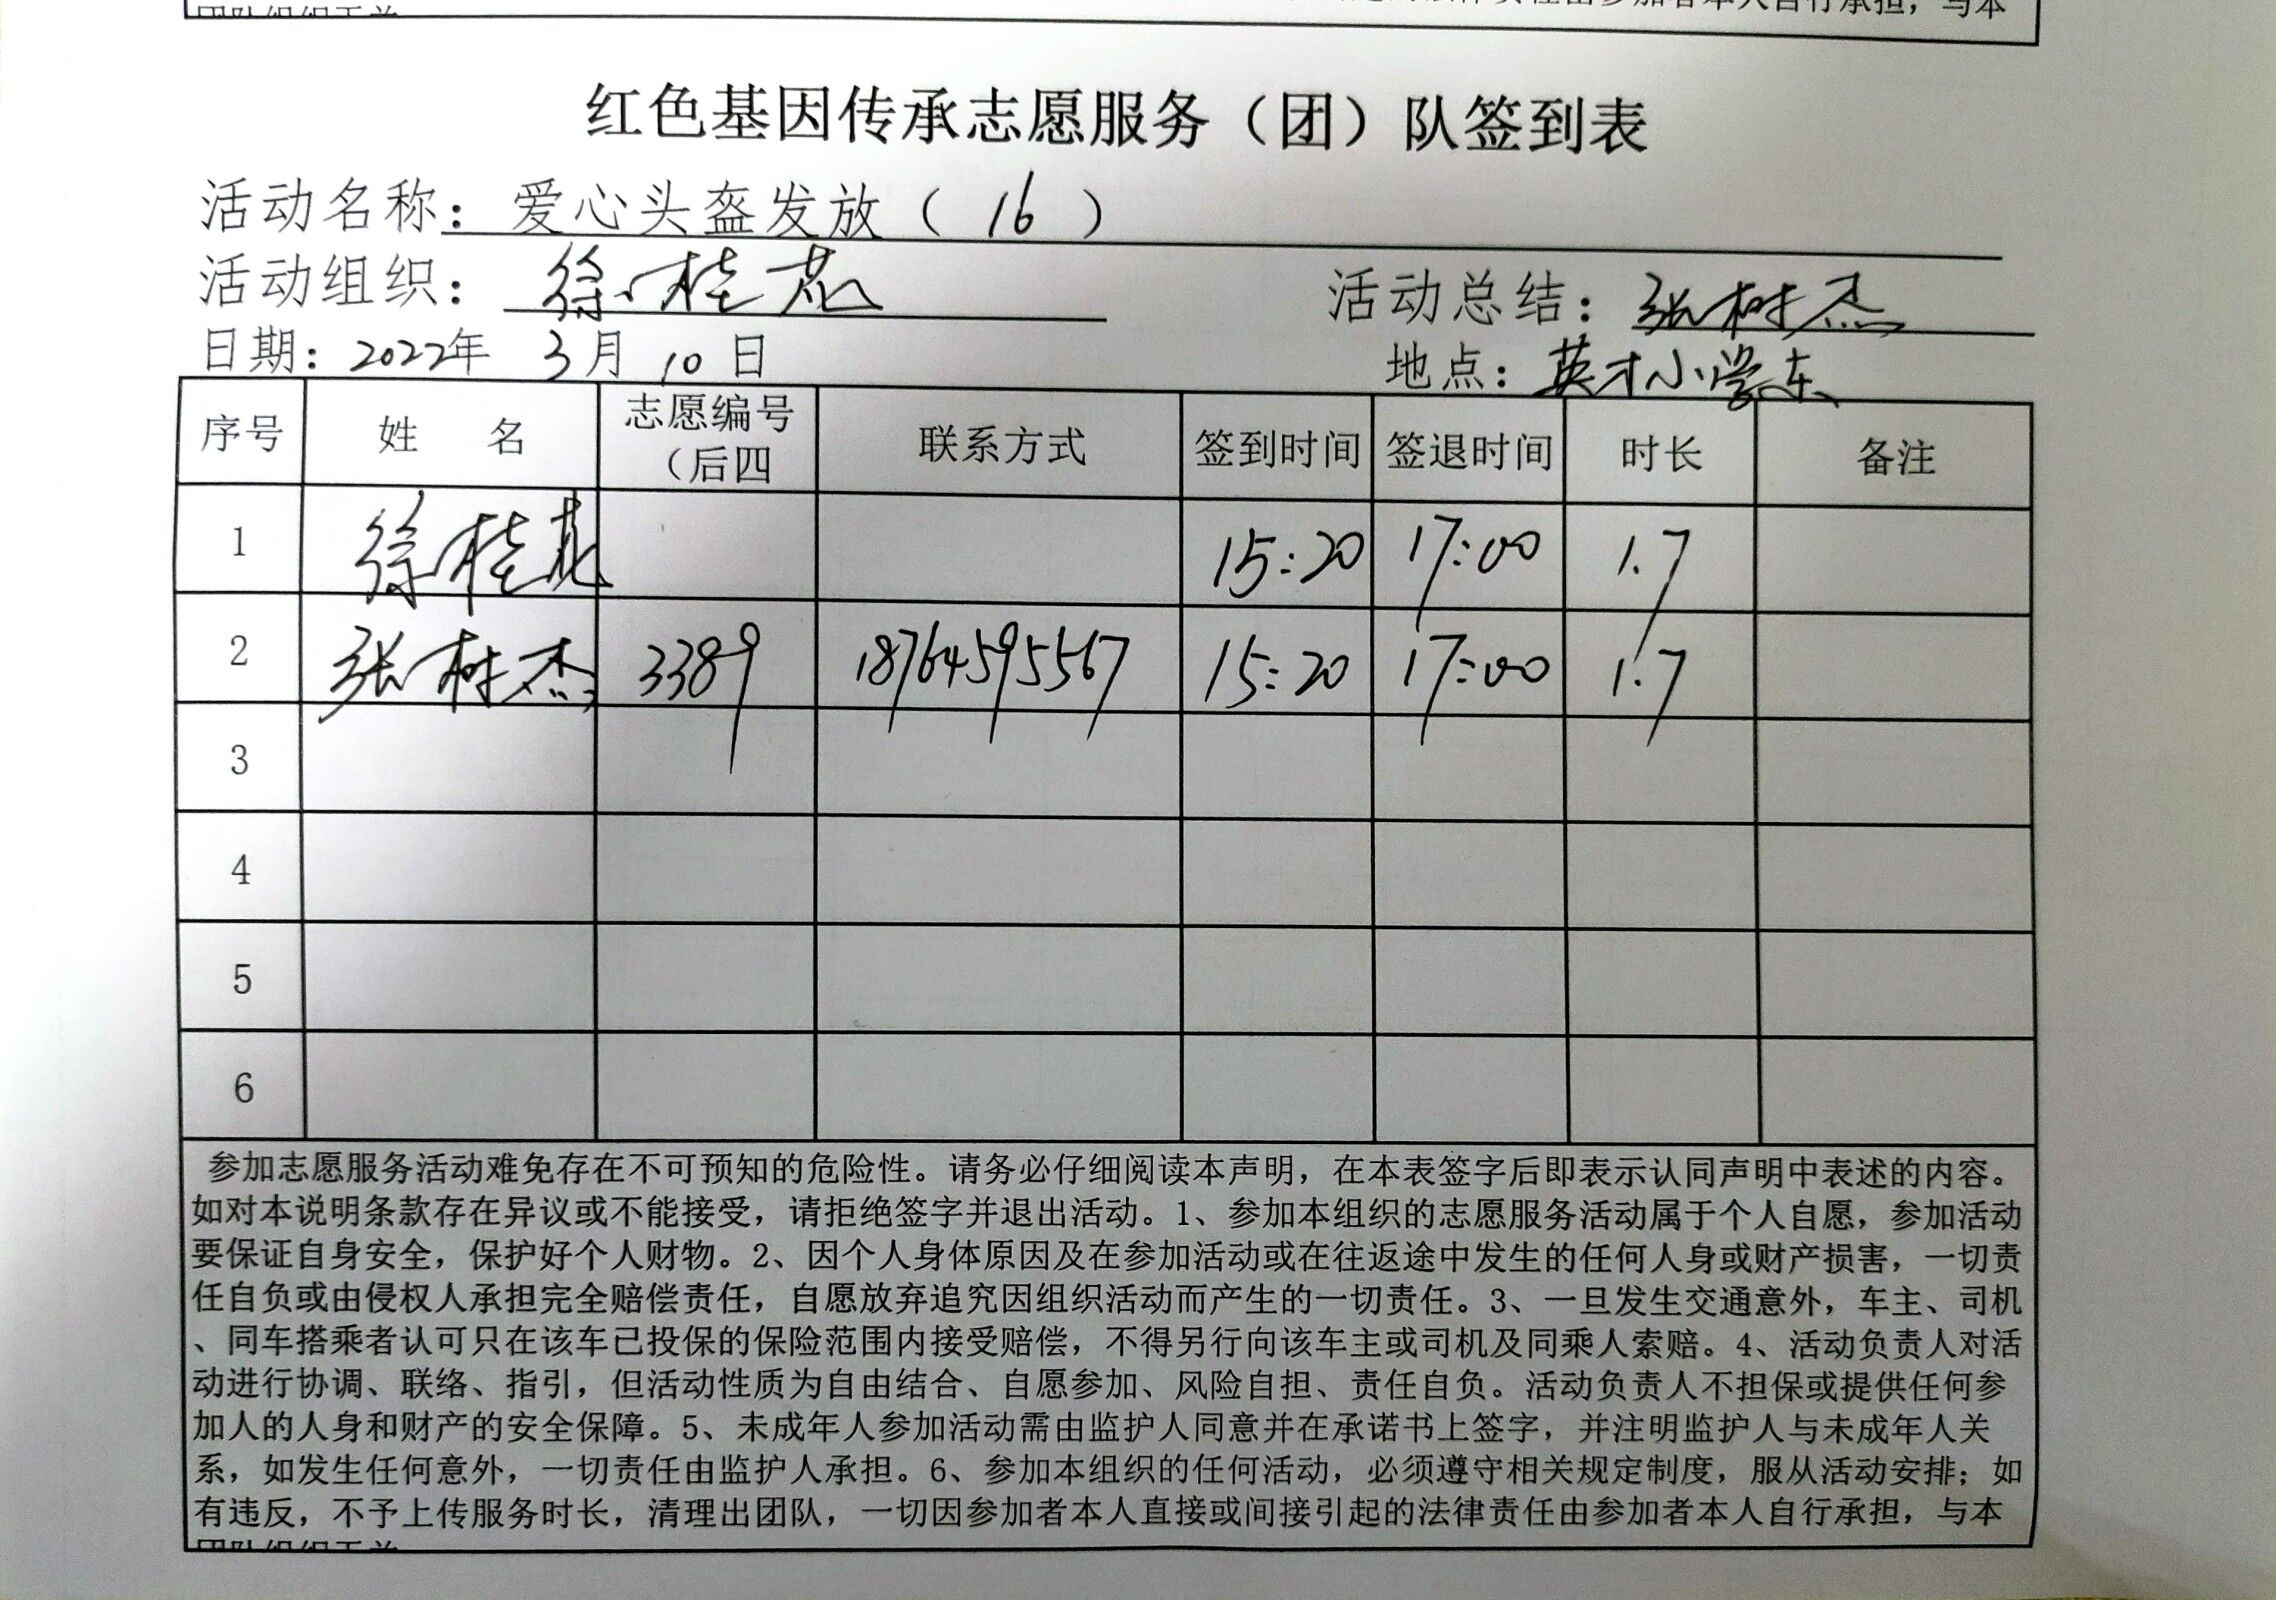 自行承担，与本
红色基因传承志愿服务（团）队签到表
活动名称：爱心头盔发放（16）
活动组织：徐桂花 活动总结：张树杰
日期：2022年 3月 10日 地点：英才小学东
序号 姓 名 志愿编号（后四 联系方式 签到时间 签退时间 时长 备注
1 徐桂花 15:20 17:00 1.7
2 张树杰 3389 18764595567 15:20 17:00 1.7
3
4
5
6
参加志愿服务活动难免存在不可预知的危险性。请务必仔细阅读本声明，在本表签字后即表示认同声明中表述的内容。
如对本说明条款存在异议或不能接受，请拒绝签字并退出活动。1、参加本组织的志愿服务活动属于个人自愿，参加活动
要保证自身安全，保护好个人财物。2、因个人身体原因及在参加活动或在往返途中发生的任何人身或财产损害，一切责
任自负或由侵权人承担完全赔偿责任，自愿放弃追究因组织活动而产生的一切责任。3、一旦发生交通意外，车主、司机
、同车搭乘者认可只在该车已投保的保险范围内接受赔偿，不得另行向该车主或司机及同乘人索赔。4、活动负责人对活
动进行协调、联络、指引，但活动性质为自由结合、自愿参加、风险自担、责任自负。活动负责人不担保或提供任何参
加人的人身和财产的安全保障。5、未成年人参加活动需由监护人同意并在承诺书上签字，并注明监护人与未成年人关
系，如发生任何意外，一切责任由监护人承担。6、参加本组织的任何活动，必须遵守相关规定制度，服从活动安排；如
有违反，不予上传服务时长，清理出团队，一切因参加者本人直接或间接引起的法律责任由参加者本人自行承担，与本